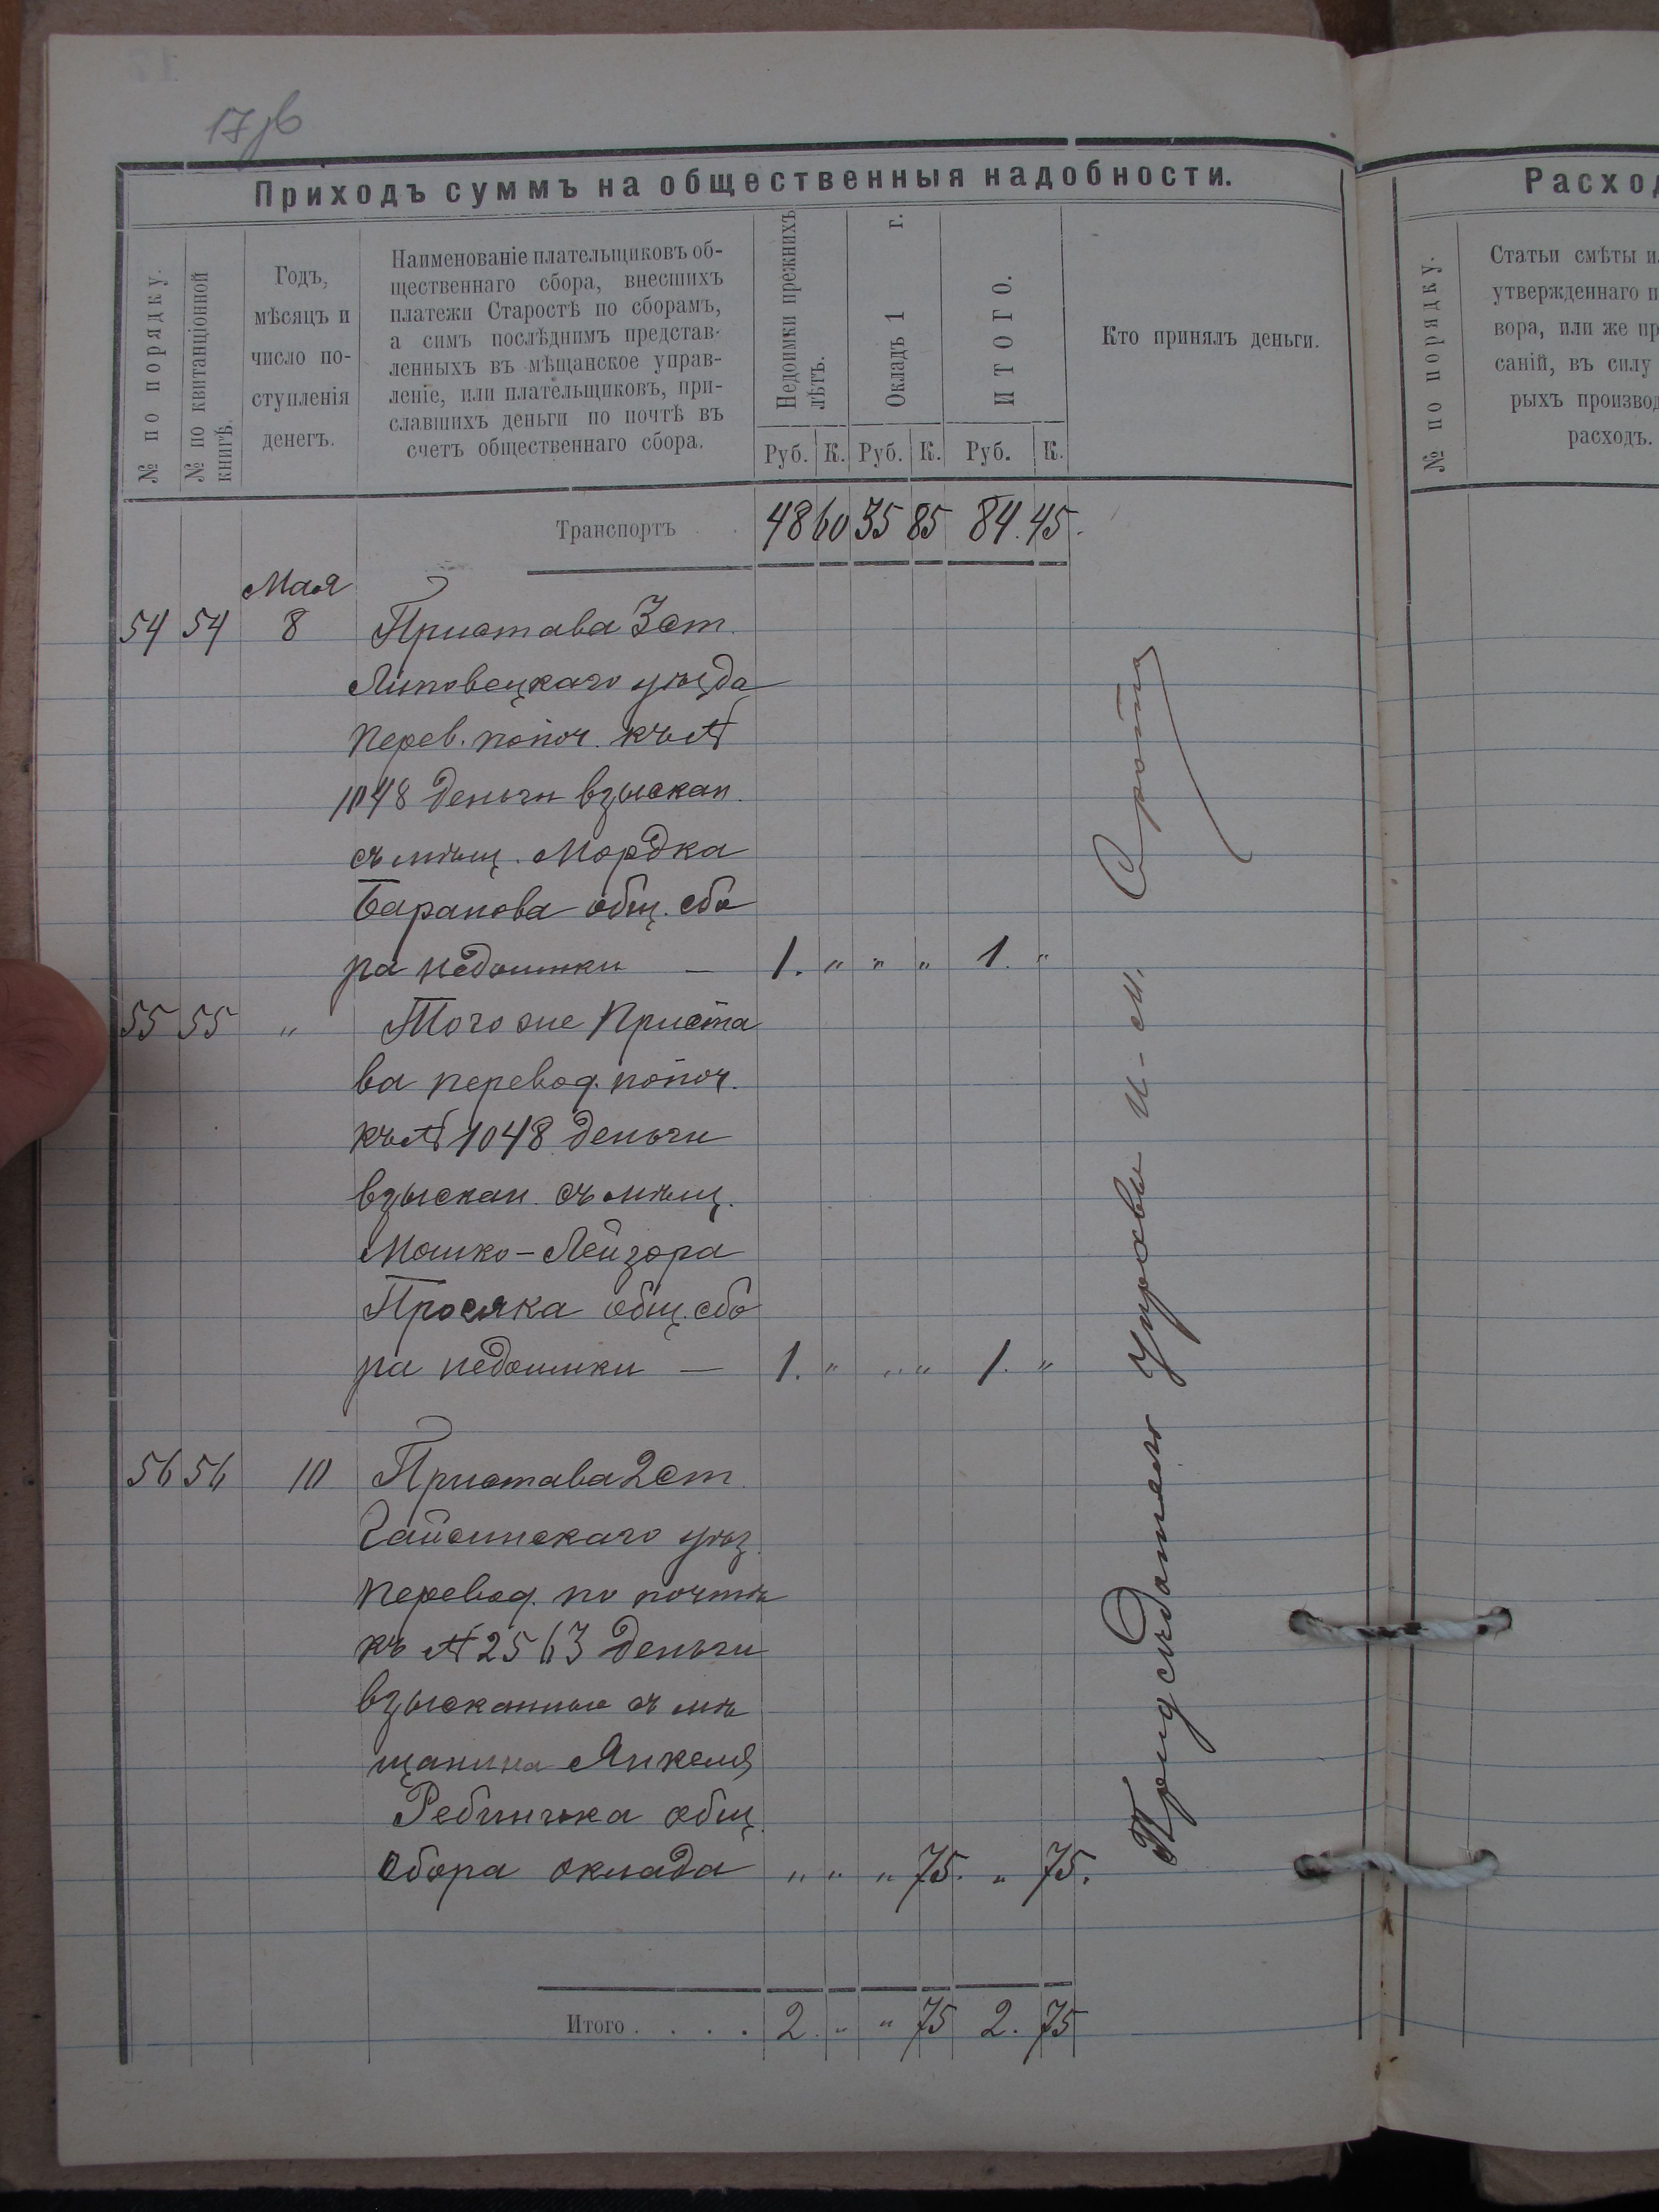 17 об
Приходъ суммъ на общественныя надобности.
№ по порядку.
№ по квитанціонной
книгѣ.
Годъ,
мѣсяцъ и
число по-
ступленія
денегъ.
Наименованіе плательщиковъ об-
щественнаго сбора, внесшихъ
платежи Старостѣ по сборамъ,
а симъ послѣднимъ представ-
ленныхъ въ мѣщанское управ-
леніе, или плательщиковъ, при-
славшихъ деньги по почтѣ въ
счетъ общественнаго сбора.
Недоимки прежнихъ
лѣтъ.
Окладъ 1 г.
ИТОГО.
Кто принялъ деньги.
Руб. К. Руб. К. Руб. К.
Транспортъ 48 60 35 85 84. 45.
Мая
54 54 8 Пристава 3 ст.
Липовецкаго уѣзда
перев. по поч. къ №
1048 деньги взыскан.
съ мѣщ. Мордка
Баранова общ. сбо
ра недоимки — 1. " " " 1. "
55 55 " Того же Приста
ва перевод. по поч.
къ № 1048 деньги
взыскан. съ мѣщ.
Мошко-Лейзора
Просяка общ. сбо
ра недоимки — 1. " " " 1. "
56 56 10 Пристава 2 ст.
Гайсинскаго уѣз.
перевод. по почтѣ
къ № 2563 деньги
взысканные съ мѣ
щанина Янкеля
Ребинчка общ.
сбора оклада " " " 75. " 75.
Итого . . . . 2. " " 75 2. 75
Предсѣдатель Управы И-М.
Расход
№ по порядку.
Статьи смѣты и
утвержденнаго п
вора, или же пр
саній, въ силу
рыхъ производ
расходъ.